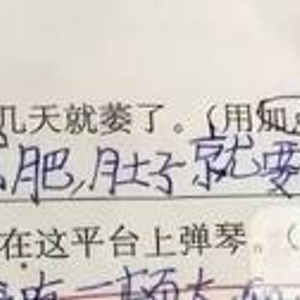 几天就萎了。(用加
肥,肚子就要
在这平台上弹琴。(
一顿大